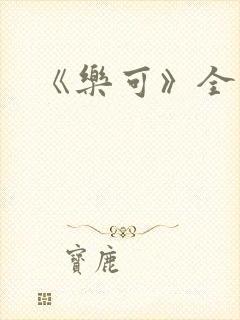 《樂可》全
寶鹿